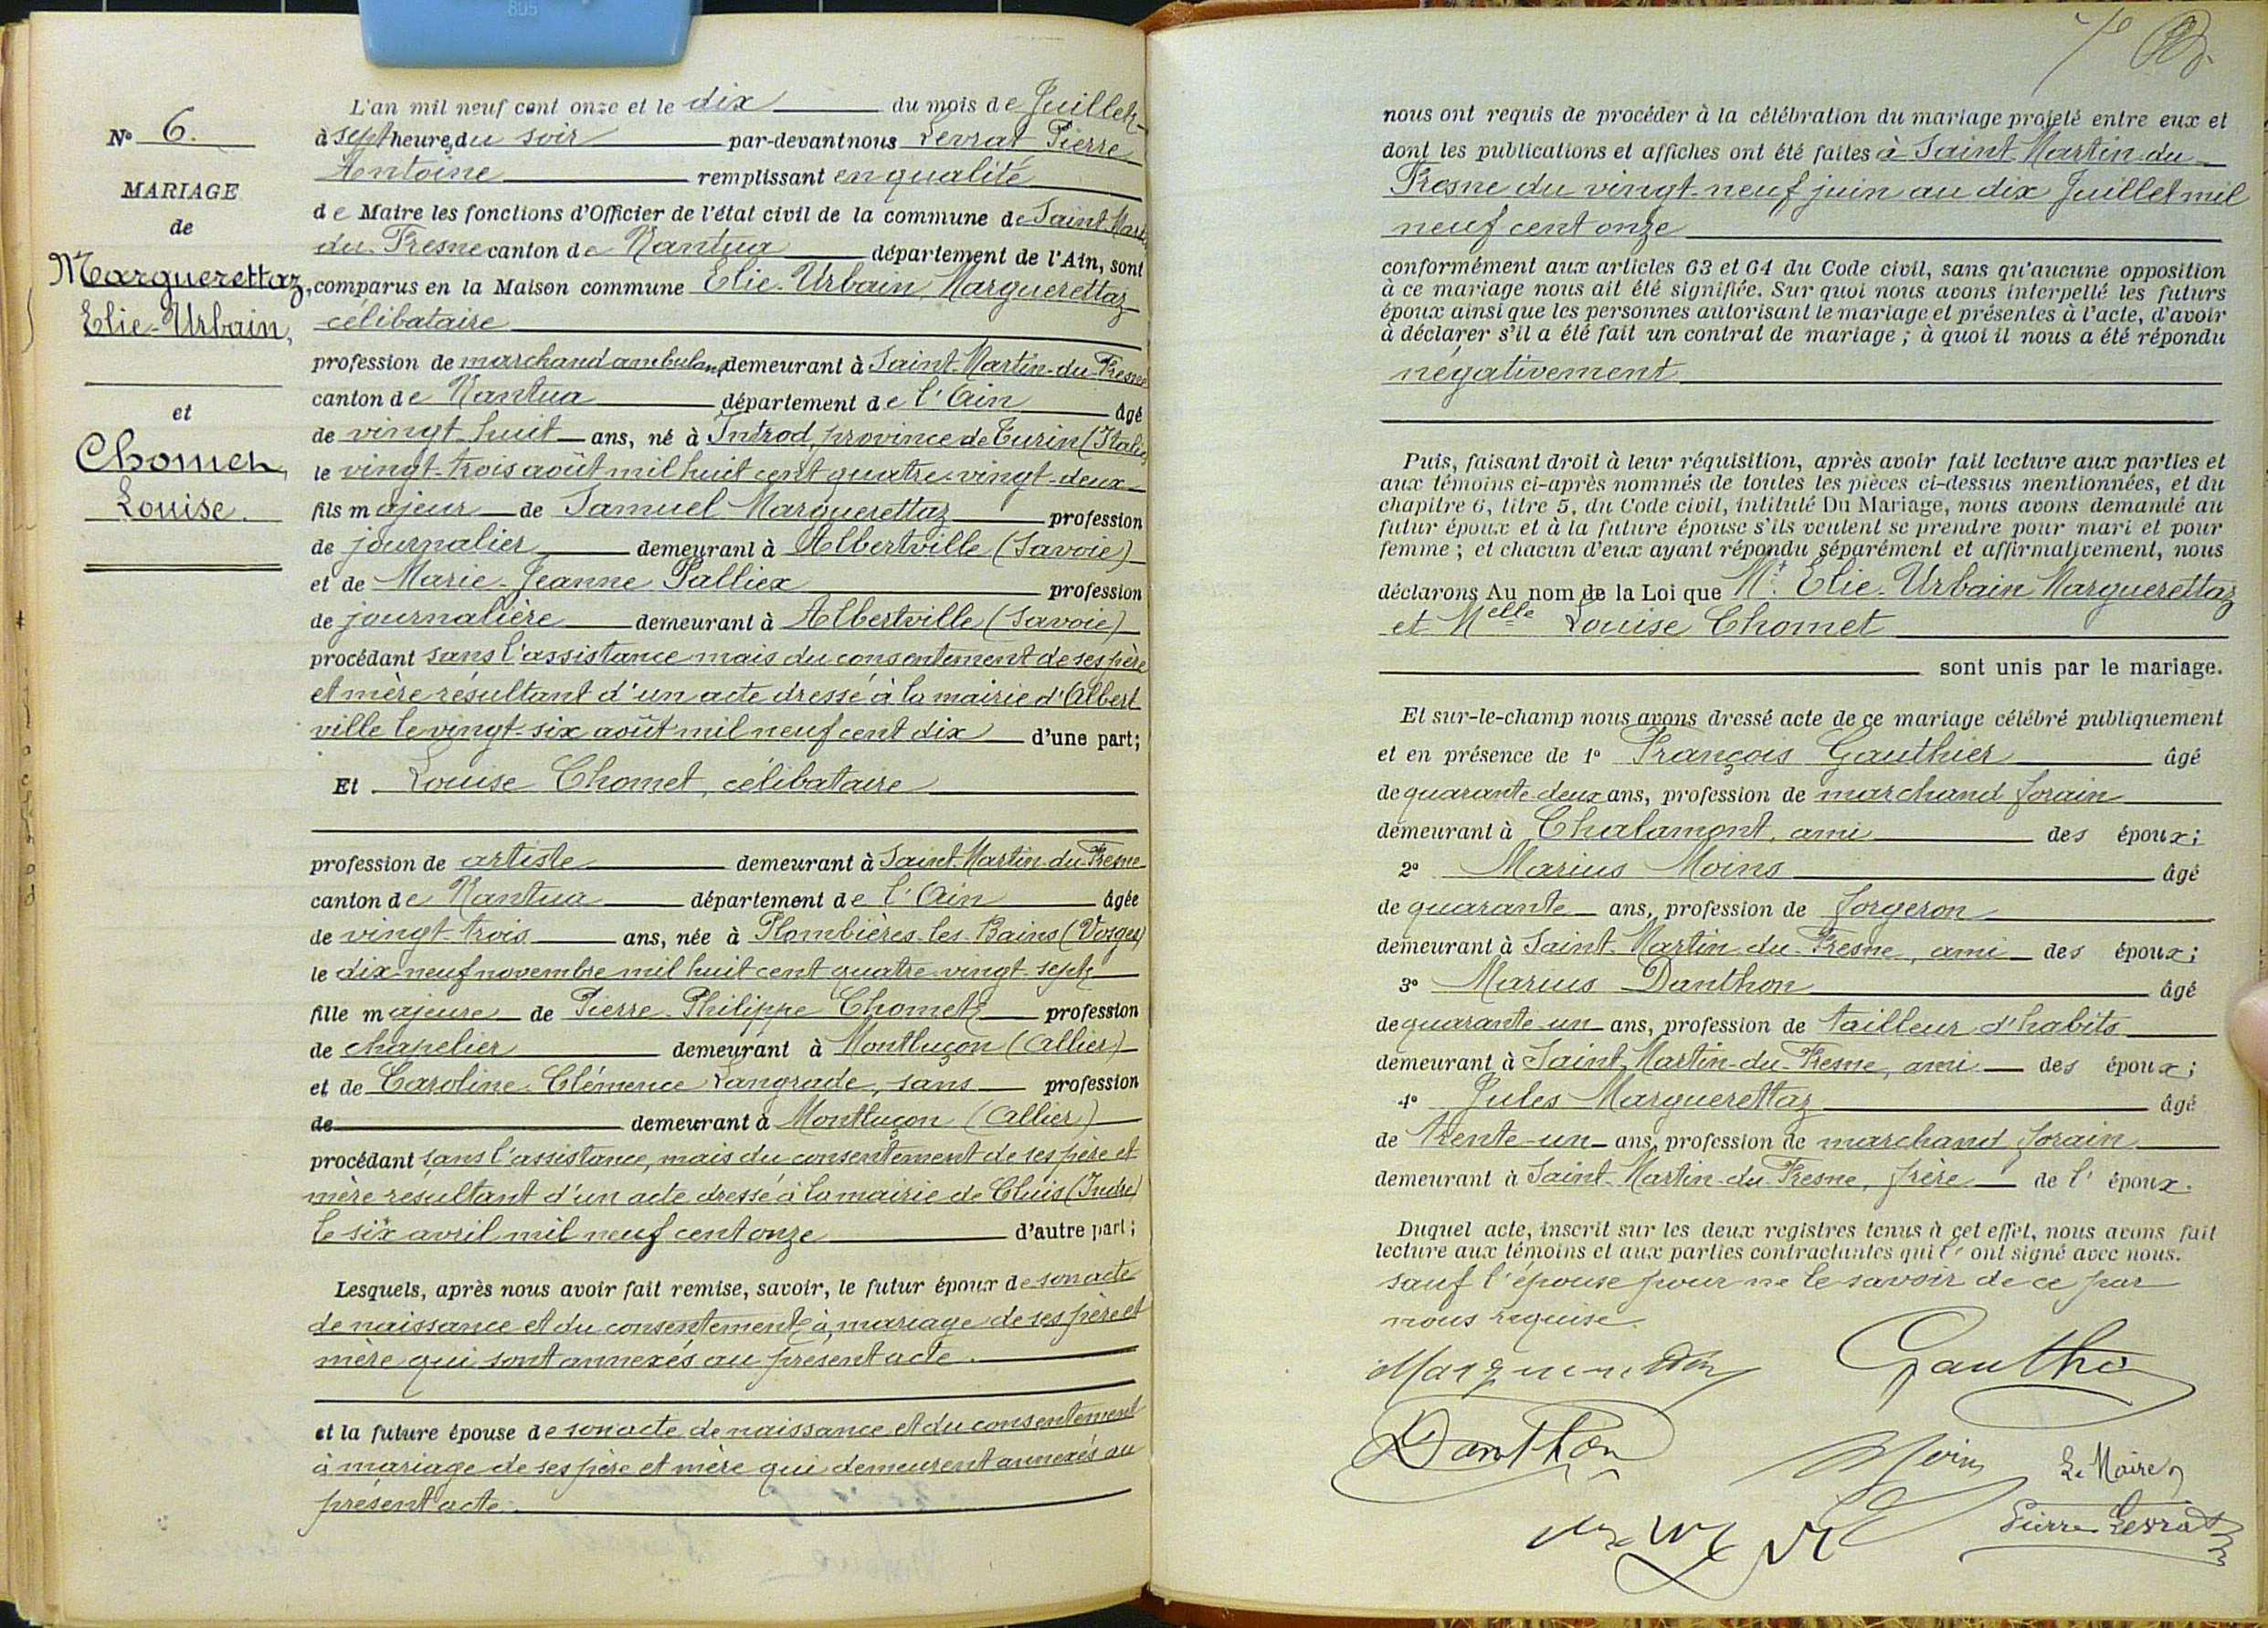 805
N° 6.
MARIAGE
de
Marguerettaz,
Elie-Urbain,
et
Chomet,
Louise.
L'an mil neuf cent onze et le dix du mois de Juillet
à sept heures du soir par-devant nous Levrat Pierre
Antoine remplissant en qualité
de Maire les fonctions d'Officier de l'état civil de la commune de Saint-Martin
du-Fresne canton de Nantua département de l'Ain, sont
comparus en la Maison commune Elie-Urbain Marguerettaz
célibataire
profession de marchand ambulant demeurant à Saint-Martin-du-Fresne
canton de Nantua département de l'Ain âgé
de vingt-huit ans, né à Introd, province de Turin (Italie)
le vingt-trois août mil huit cent quatre-vingt-deux
fils majeur de Samuel Marguerettaz profession
de journalier demeurant à Albertville (Savoie)
et de Marie-Jeanne Palliex profession
de journalière demeurant à Albertville (Savoie)
procédant sans l'assistance mais du consentement de ses père
et mère résultant d'un acte dressé à la mairie d'Albert
ville le vingt-six août mil neuf cent dix d'une part;
Et Louise Chomet, célibataire
profession de artiste demeurant à Saint-Martin-du-Fresne
canton de Nantua département de l'Ain âgée
de vingt-trois ans, née à Plombières-les-Bains (Vosges)
le dix-neuf novembre mil huit cent quatre-vingt-sept
fille majeure de Pierre-Philippe Chomet profession
de chapelier demeurant à Montluçon (Allier)
et de Caroline-Clémence Langrade, sans profession
de demeurant à Montluçon (Allier)
procédant sans l'assistance, mais du consentement de ses père et
mère résultant d'un acte dressé à la mairie de Cluis (Indre)
le six avril mil neuf cent onze d'autre part;
Lesquels, après nous avoir fait remise, savoir, le futur époux de son acte
de naissance et du consentement à mariage de ses père et
mère qui sont annexés au présent acte.
et la future épouse de son acte de naissance et du consentement
à mariage de ses père et mère qui demeurent annexés au
présent acte.
nous ont requis de procéder à la célébration du mariage projeté entre eux et
dont les publications et affiches ont été faites à Saint-Martin-du-
Fresne du vingt-neuf juin au dix Juillet mil
neuf cent onze
conformément aux articles 63 et 64 du Code civil, sans qu'aucune opposition
à ce mariage nous ait été signifiée. Sur quoi nous avons interpellé les futurs
époux ainsi que les personnes autorisant le mariage et présentes à l'acte, d'avoir
à déclarer s'il a été fait un contrat de mariage; à quoi il nous a été répondu
négativement
Puis, faisant droit à leur réquisition, après avoir fait lecture aux parties et
aux témoins ci-après nommés de toutes les pièces ci-dessus mentionnées, et du
chapitre 6, titre 5, du Code civil, intitulé Du Mariage, nous avons demandé au
futur époux et à la future épouse s'ils veulent se prendre pour mari et pour
femme; et chacun d'eux ayant répondu séparément et affirmativement, nous
déclarons Au nom de la Loi que Mr. Elie-Urbain Marguerettaz
et Melle Louise Chomet
sont unis par le mariage.
Et sur-le-champ nous avons dressé acte de ce mariage célébré publiquement
et en présence de 1° François Gauthier âgé
de quarante-deux ans, profession de marchand forain
demeurant à Chalamont, ami des époux;
2° Marius Moins âgé
de quarante ans, profession de forgeron
demeurant à Saint-Martin-du-Fresne, ami des époux;
3° Marius Danthon âgé
de quarante-un ans, profession de tailleur d'habits
demeurant à Saint-Martin-du-Fresne, ami des époux;
4° Jules Marguerettaz âgé
de trente-un ans, profession de marchand forain
demeurant à Saint-Martin-du-Fresne, frère de l'époux.
Duquel acte, inscrit sur les deux registres tenus à cet effet, nous avons fait
lecture aux témoins et aux parties contractantes qui l'ont signé avec nous.
sauf l'épouse pour ne le savoir de ce par
nous requise.
Danthon
Moins
Le Maire,
Pierre Levrat